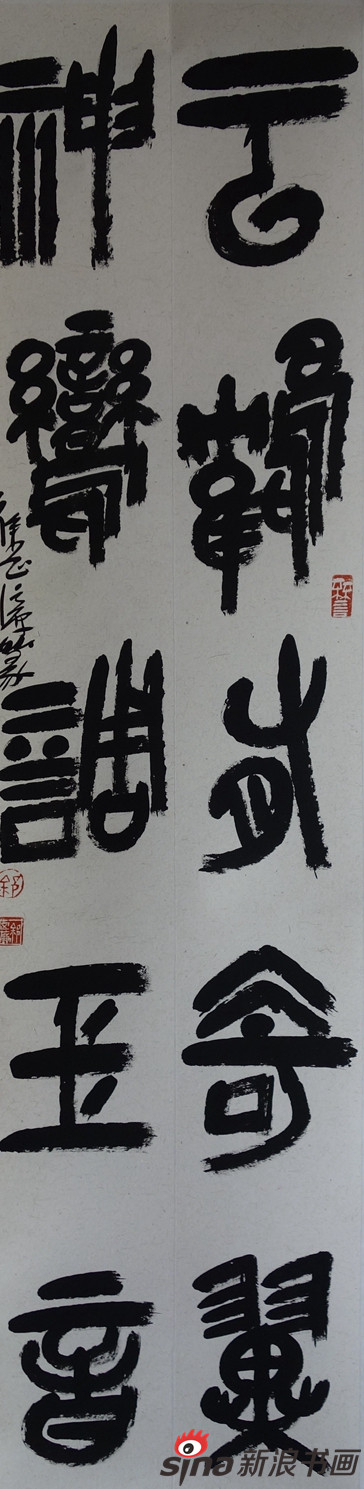 云鶴有奇翼
神鸞調玉音
sina新浪书画